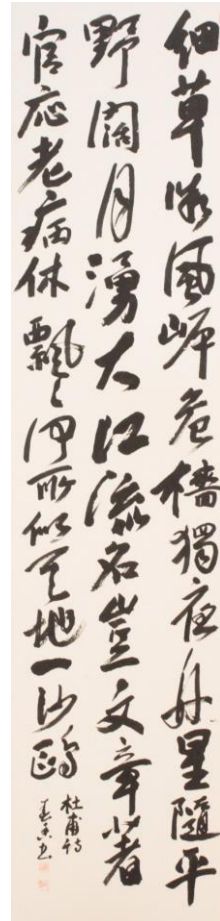 細草微風岸危檣獨夜舟星隨平
野闊月湧大江流名豈文章著
官応老病休飄々何所似天地一沙鷗
杜甫詩